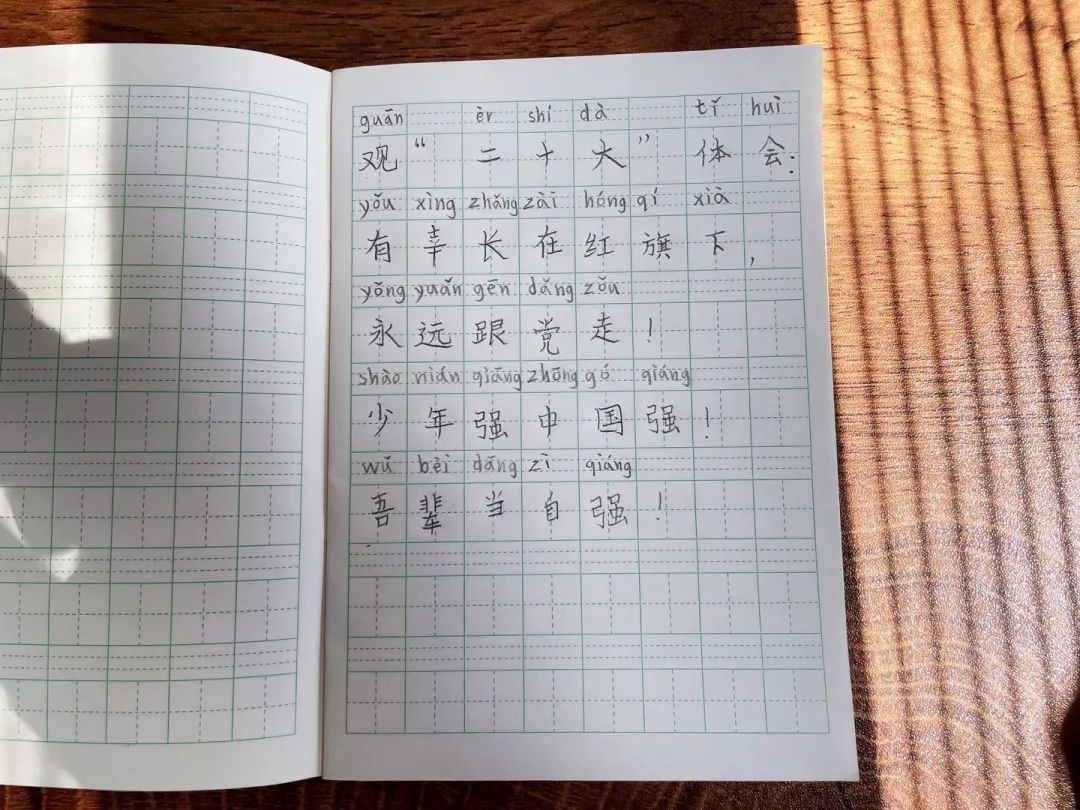 guān èr shí dà tǐ huì
观“二十大”体会:
yǒu xìng zhǎng zài hóng qí xià
有幸长在红旗下,
yǒng yuǎn gēn dǎng zǒu
永远跟党走!
shào nián qiāng zhōng gó qiáng
少年强中国强!
wú bèi dāng zì qiáng
吾辈当自强!